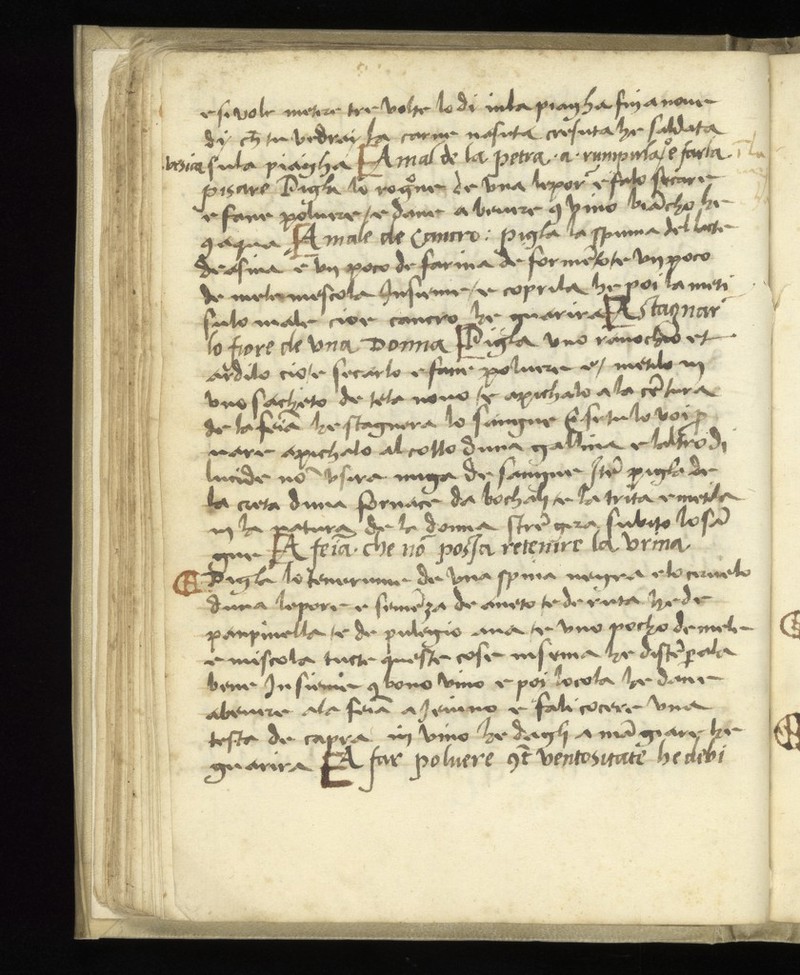 e si vole metere tre volte lo di in la piagha fin a nove
dy ch tu vedrai la carne nasuta cresuta he saldata
sula piagha A mal de la petra a rumpirla e farla
pisare Pigla lo rognoe de una lepor e falo secare
e fane polvere e dane a bevere 9 vino biācho he
9 aqua A male de Cancro: pigla la spuma del latte
de asina e un poco de farina de formēto te un poco
de mele mescola Insieme e coprila he poi la meti
sulo male cioe cancro he guarira A stagnar
lo fiore de una Donna Pigla uno ranochio et
ardilo cioe secarlo e fane polvere et metilo in
uno sacheto de tela novo te apichalo a la cētura
de la feīa he stagnera lo sangue E se tu lo voi p
vare apichalo al collo duna gallina e laltro di
lucide nō usira miga de sangue Itē pigla de
la creta duna fornace da bochali te la trita e metila
in la natura de la donna strēgera subito lo sā
gue A feīa che nō possa retenire la urina
Pigla lo tenerume de una spina negra e lo cervelo
duna lepore e semēza de aneto te de ruta he de
panpinella te de pulegio ana te uno pocho de mele
e miscola tucte queste cose insema he distēpala
bene Insieme 9 bono vino e poi lo cola he dane
a bevere a la feīa a Jeiuno e fali cocere una
testa de capra in vino he dagli a māgiare he
guarira A far polvere 9t ventositate he debi